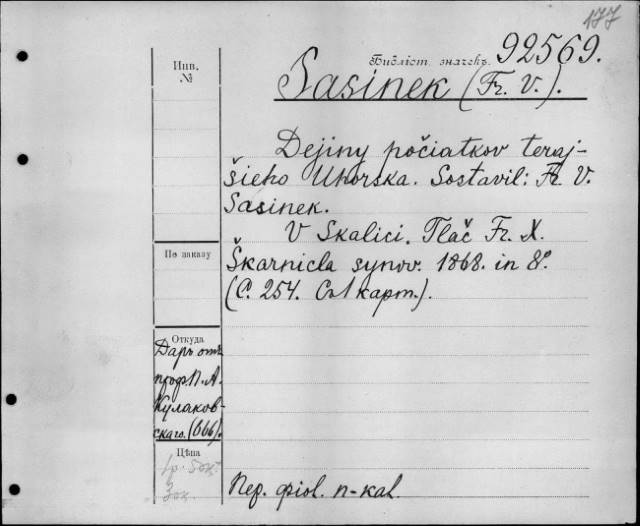 177
Библіот. значекъ. 92569.
Инв. №
Sasinek (Fr. V.).
Dejiny počiatkov teraj-
šieho Uhorska. Sostavil: Fr. V.
Sasinek.
V Skalici. Tlač Fr. X.
Škarnicla synov. 1868. in 8°
(С. 254. Съ 1 карт.).
По заказу
Откуда
Даръ отъ
проф. П. А.
Кулаков-
скаго. (666).
Цѣна
Пер. фіол. п-кал.